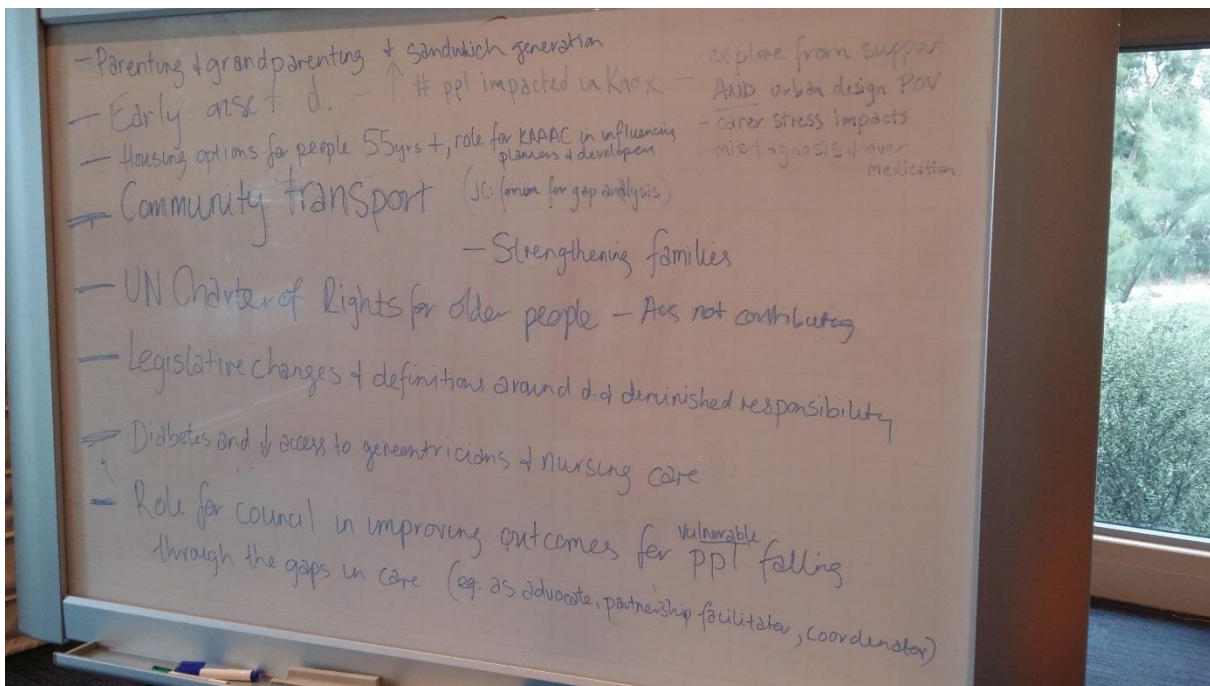 - Parenting & grandparenting & sandwich generation
- Early onset d. - ↑ # ppl impacted in Knox -
explore from support
AND urban design POV
- carer stress impacts
- misdiagnosis & over
medication
- Housing options for people 55yrs +, role for KAAAC in influencing
planners & developers
- Community transport (JC: forum for gap analysis)
- Strengthening families
- UN Charter of Rights for older people - Aus not contributing
- Legislative changes & definitions around d. & deminished responsibility
- Diabetes and ↓ access to gereentricians & nursing care
- Role for council in improving outcomes for vulnerable ppl falling
through the gaps in care (eg. as advocate, partnership facilitator, coordenator)